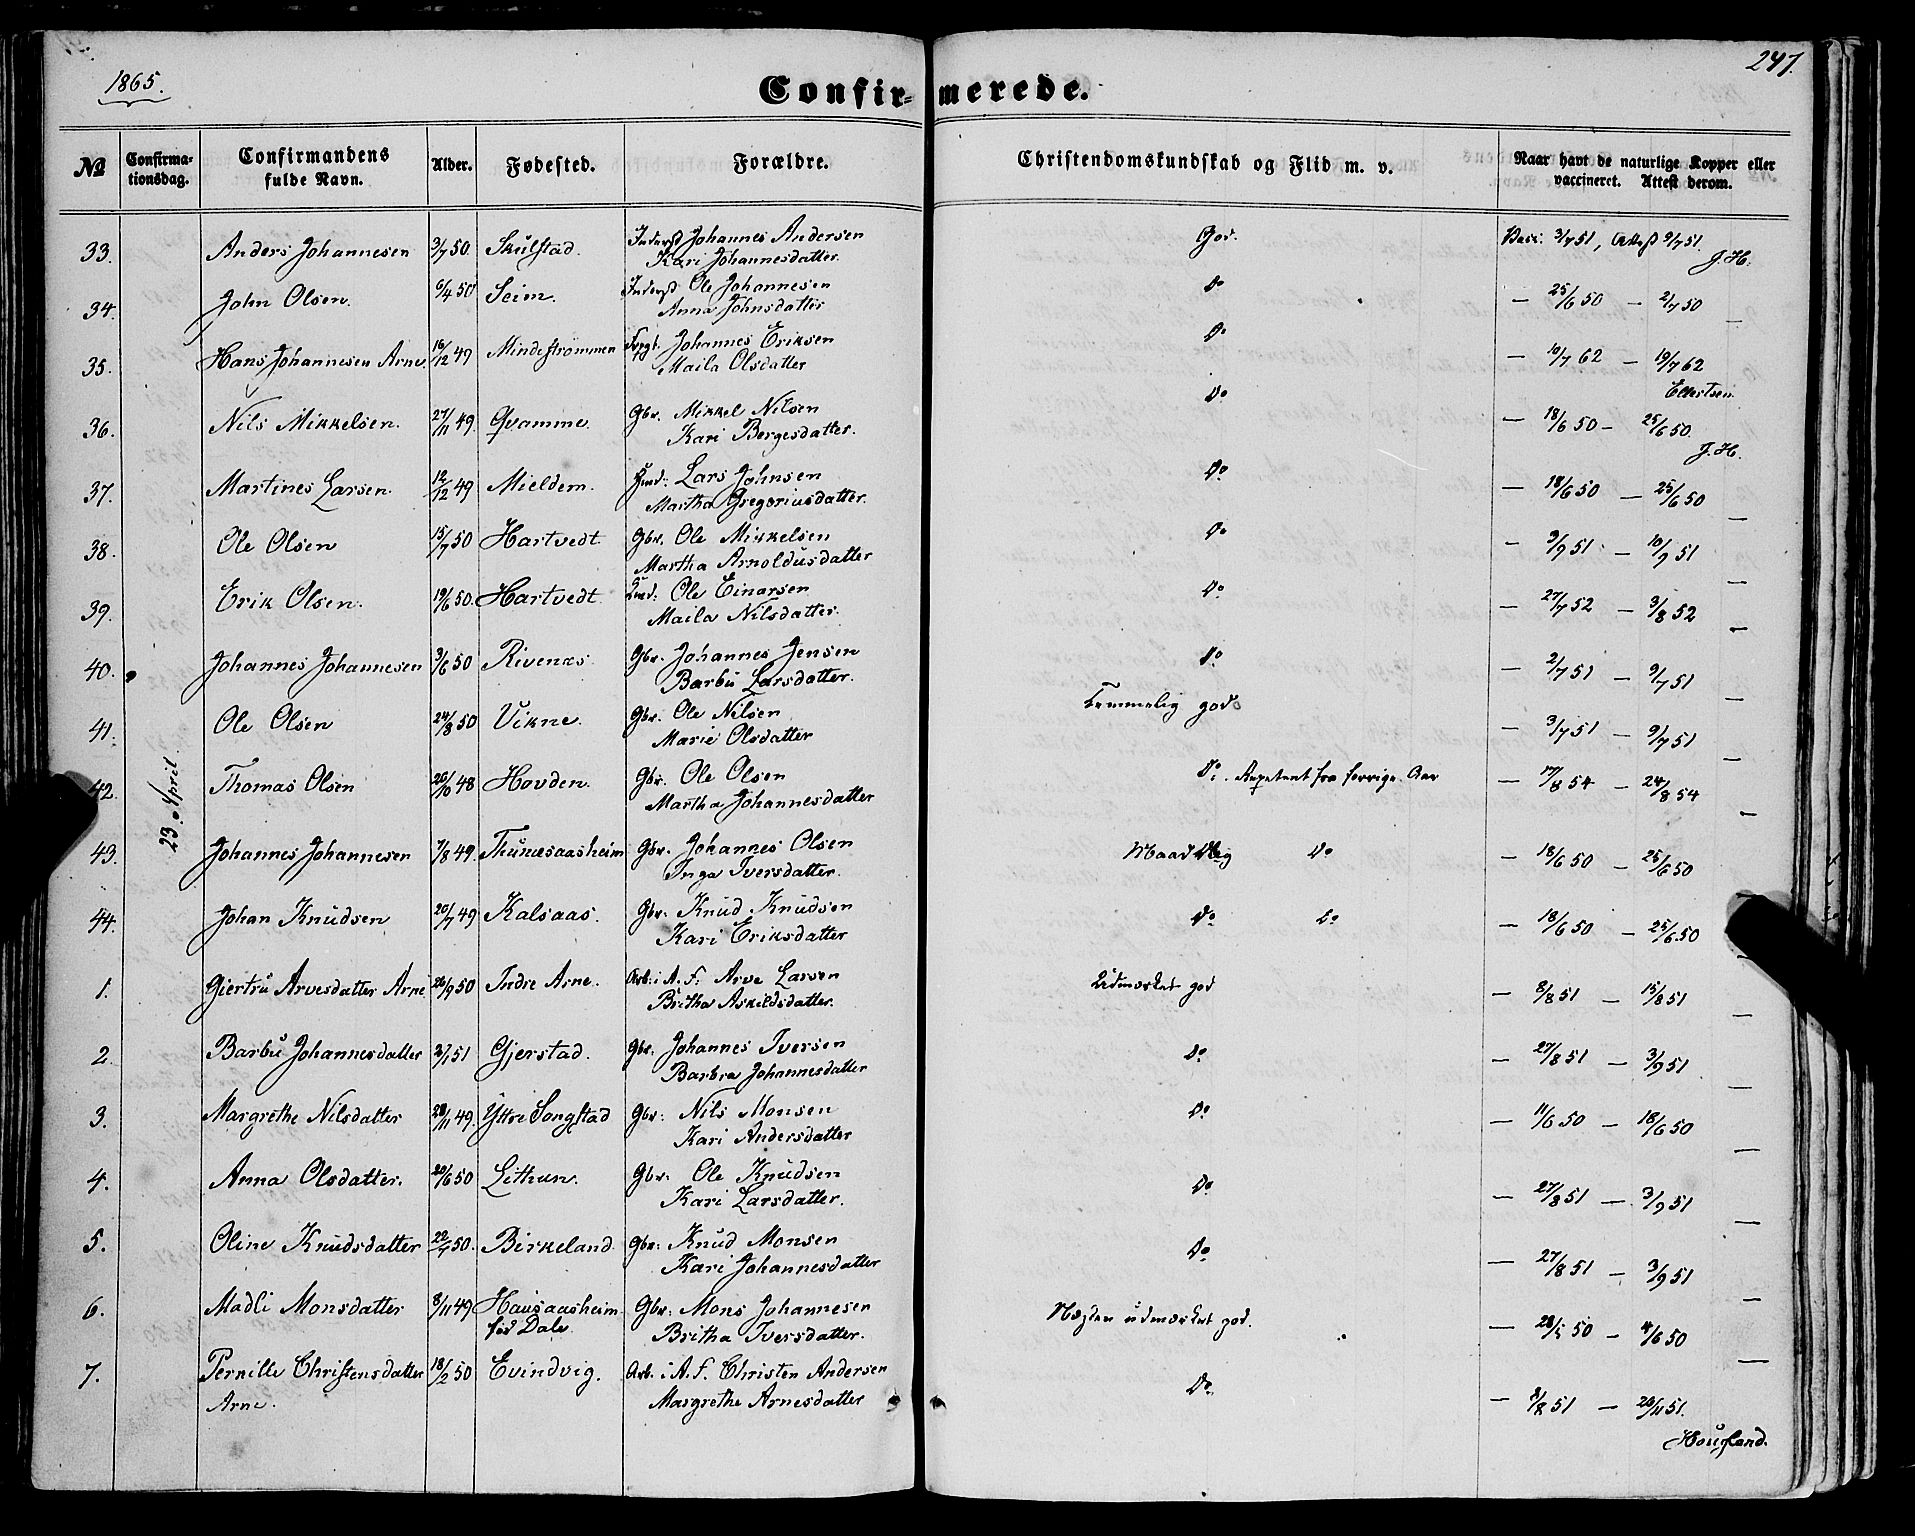 1865.
247.
Confirmerede.
No
Confirmationsdag.
Confirmandens fulde Navn.
Alder.
Fødested.
Forældre.
Christendomskundskab og Flid m. v.
Naar havt de naturlige Kopper eller vaccineret. Attest derom.
23. April
33. Anders Johannesen 3/7 50 Skulstad. Inderst Johannes Andersen God. Vacc. 3/7 51, Attest 9/7 51
Kari Johannesdatter. J. H.
34. John Olsen. 6/4 50 Seim. Inderst Ole Johannesen Do — 25/6 50 — 2/7 50
Anna Johnsdatter —
35. Hans Johannesen Arne. 16/12 49 Mindestrømmen Johannes Eriksen Do — 10/7 62 — 19/7 62
Maila Olsdatter
36. Nils Mikkelsen. 27/11 49. Qvamme. Gbr. Mikkel Nilsen Do — 18/6 50 — 25/6 50.
Kari Børgesdatter. J. H.
37. Martines Larsen. 12/12 49 Mieldem. Lars Johnsen Do — 18/6 50 — 25/6 50
Martha Gregoriusdatter. —
38. Ole Olsen 15/7 50 Hartvedt Gbr. Ole Mikkelsen Do — 9/9 51 — 10/9 51
Martha Arnoldusdatter —
39. Erik Olsen. 19/6 50. Hartvedt Ole Einarsen Do — 27/7 52 — 3/8 52
Maila Nilsdatter. —
40. Johannes Johannesen 3/6 50 Rivenæs Gbr. Johannes Jensen Do — 2/7 51 — 9/7 51
Barbu Larsdatter. —
41. Ole Olsen 24/8 50 Vikne. Gbr. Ole Nilsen Temmelig god — 3/7 51 — 9/7 51
Marie Olsdatter —
42. Thomas Olsen 26/10 48 Hovden. Gbr. Ole Olsen Do. Repetent fra forrige Aar — 17/8 54 — 24/8 54
Martha Johannesdatter —
43. Johannes Johannesen 7/8 49. Thunesaasheim Gbr. Johannes Olsen Maadelig Do — 18/6 50 — 25/6 50
Inga Iversdatter. —
44. Johan Knudsen 20/7 49 Kalsaas. Gbr. Knud Knudsen Do Do — 18/6 50 — 25/6 50
Kari Eriksdatter —
1. Giertru Arvesdatter Arne 26/9 50 Indre Arne. Arb. i A. F. Arve Larsen Udmærket god — 8/8 51 — 15/8 51
Britha Askildsdatter. —
2. Barbu Johannesdatter 2/1 51 Gjerstad. Gbr. Johannes Iversen Do — 27/8 51 — 3/9 51
Barbra Johannesdatter —
3. Margrethe Nilsdatter 28/11 49. Yttre Songstad Gbr. Nils Monsen Do — 11/6 50 — 18/6 50
Kari Andersdatter —
4. Anna Olsdatter. 20/6 50 Lithun. Gbr. Ole Knudsen Do — 27/8 51 — 3/9 51
Kari Larsdatter. —
5. Oline Knudsdatter 50. Birkeland Gbr. Knud Monsen Do — 27/8 51 — 3/9 51
Kari Johannesdatter —
6. Madli Monsdatter 8/11 49 Hausaasheim Gbr. Mons Johannesen Næsten udmærket god. — 28/5 50 — 4/6 50
fød Dale Britha Iversdatter. —
7. Pernille Christensdatter 18/2 50 Evindvig. Arb. i A. F. Christen Andersen Do — 8/8 51 — 20/11 51.
Arne. Margrethe Arnesdatter Hougland.